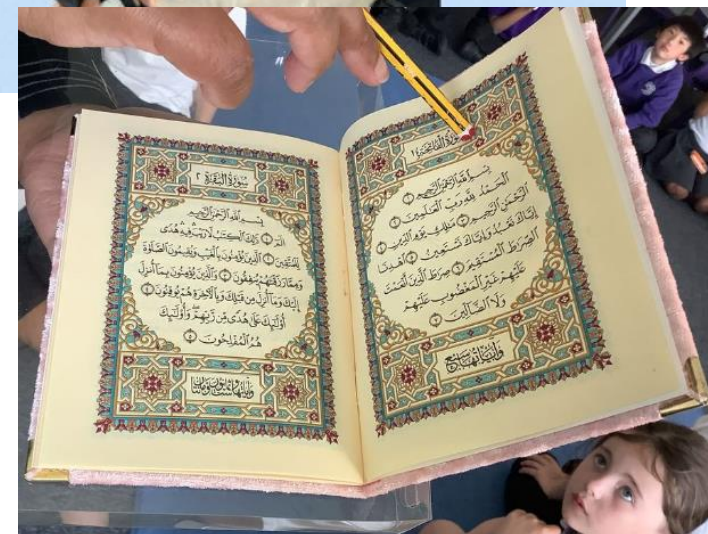 سورة الفاتحة ١
بسم الله الرحمن الرحيم ١
الحمد لله رب العالمين ٢
الرحمن الرحيم ٣ ملك يوم الدين ٤
إياك نعبد وإياك نستعين ٥ اهدنا
الصراط المستقيم ٦ صراط الذين أنعمت
عليهم غير المغضوب عليهم
ولا الضالين ٧
وآياتها سبع
سورة البقرة ٢
بسم الله الرحمن الرحيم
الم ١ ذلك الكتب لا ريب فيه هدى
للمتقين ٢ الذين يؤمنون بالغيب ويقيمون الصلوة
ومما رزقنهم ينفقون ٣ والذين يؤمنون بما أنزل
إليك وما أنزل من قبلك وبالآخرة هم يوقنون ٤
أولئك على هدى من ربهم وأولئك
هم المفلحون ٥